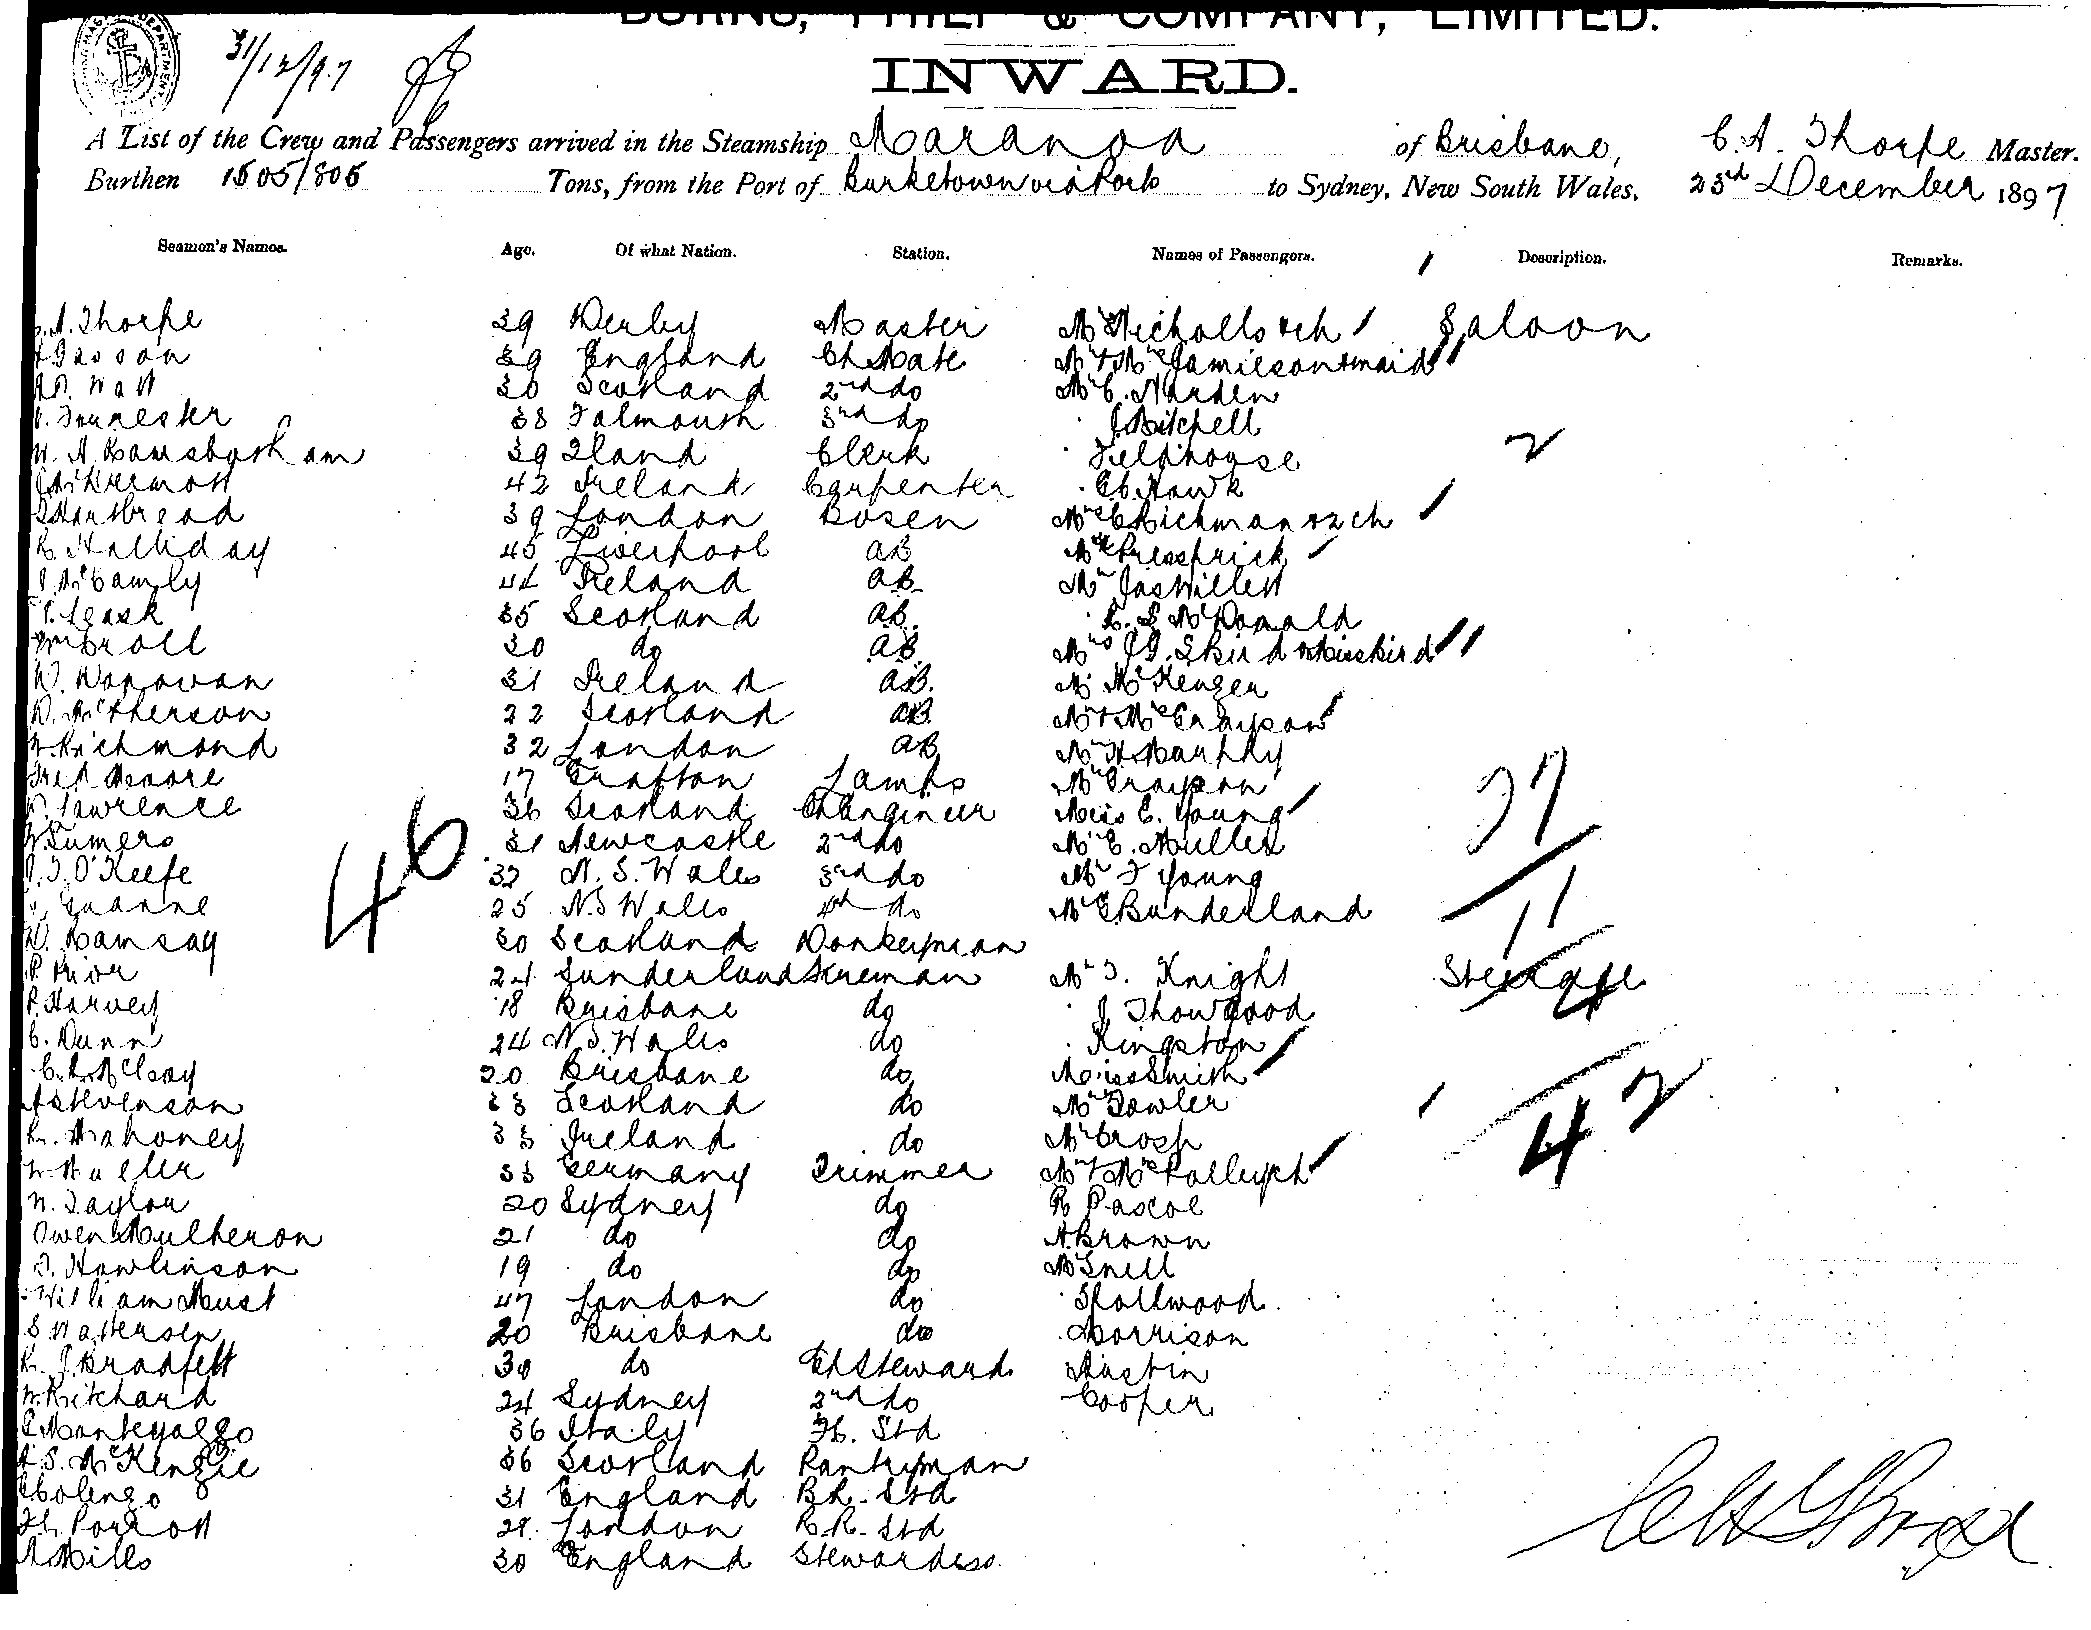 BURNS, PHILP & COMPANY, LIMITED.
31/12/97
INWARD.
A List of the Crew and Passengers arrived in the Steamship Maranoa of Brisbane, C. A. Thorpe Master.
Burthen 1505/805 Tons, from the Port of Burketown via Ports to Sydney, New South Wales, 23rd December 1897
Seamen's Names. Age. Of what Nation. Station. Names of Passengers. Description. Remarks.
A. Thorpe 39 Derby Master Nicholls & ch Saloon
39 England Ch Mate Mr & Mrs Jamieson & maid
Watt 30 Scotland 2nd do Mr C. Harden
Forrester 38 Falmouth 3rd do Mitchell
W. A. Ramsbotham 39 Iland Clerk Fieldhouse 2
McDermott 42 Ireland Carpenter Hawk
Shortbread 39 London Bosen Richman & 2 ch
R. Halliday 45 Liverpool AB
44 Ireland AB Mr Jas Willett
Leask 35 Scotland AB McDonald
Wm Croll 30 do AB Mrs Skird & Miss Skird
D. Donovan 31 Ireland AB Mr McKenzer
D. McPherson 22 Scotland AB Mr & Mrs Grayson
Richmond 32 London AB Mr H. Murphy
Fred Moore 17 Grafton Lamps Mr Grayson 37
Lawrence 36 Scotland Ch Engineer Miss E. Young
Sumers 31 Newcastle 2nd do Mr C. Muller
O'Keefe 32 N. S. Wales 3rd do Mr F Young
25 N. S Wales 4th do Mr Bunderland 11
D. Ramsay 30 Scotland Donkeyman
Prior 24 Sunderland Fireman Mr T. Knight Steerage
P. Harvey 18 Brisbane do J Thowgood
C. Dunn 24 N. S. Wales do Kingston
McLeay 20 Brisbane do Miss Smith
A Stevenson 33 Scotland do Mr Fowler 42
R. Mahoney 33 Ireland do Mr Crosp
33 Germany Trimmer Mr & Mrs Polley ch
W. Taylor 20 Sydney do R Pascoe
Owen Mulheron 21 do do A. Brown
T. Hawlinson 19 do do Mr Snell
William Must 47 London do Spottwood
S Mattersen 20 Brisbane do Morrison
R. J. Bradfelt 30 do Ch Steward Austin
W. Ritchard 24 Sydney 2nd do Cooper
Montegazzo 36 Italy F.C. Std
A S. McKenzie 36 Scotland Pantryman
Colenzo 31 England B.R. Std
Parrott 28 London B.R. Std
Mills 30 England Stewardess
46
C A Thorpe